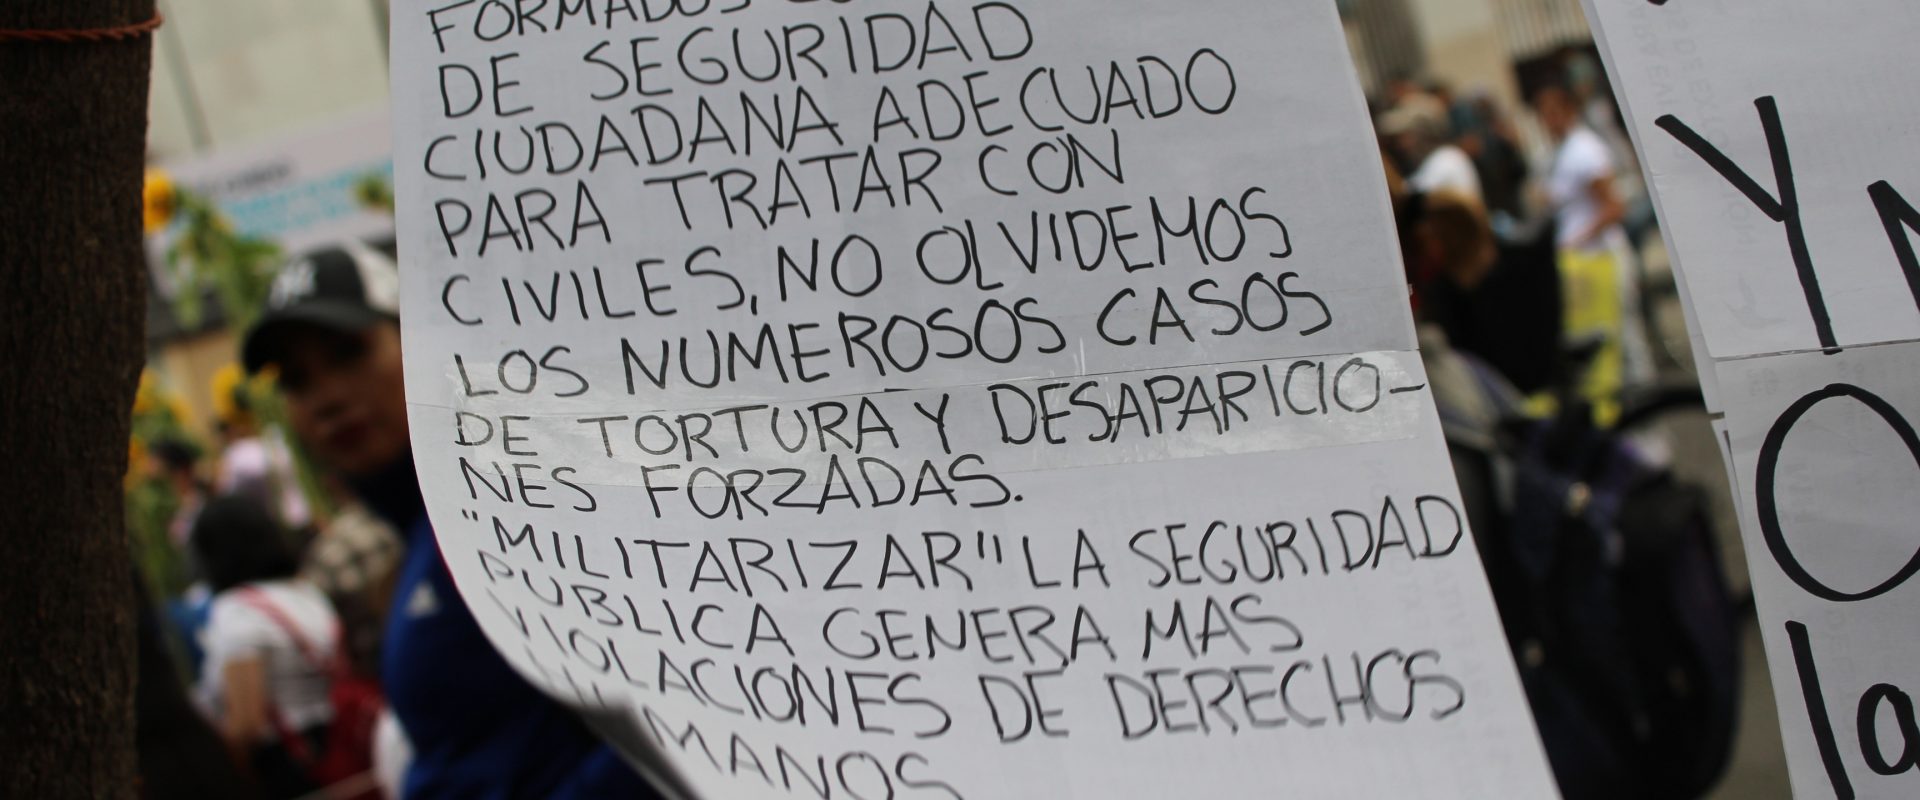 FORMADOS
DE SEGURIDAD
CIUDADANA ADECUADO
PARA TRATAR CON
CIVILES, NO OLVIDEMOS
LOS NUMEROSOS CASOS
DE TORTURA Y DESAPARICIO-
NES FORZADAS.
"MILITARIZAR" LA SEGURIDAD
PUBLICA GENERA MAS
VIOLACIONES DE DERECHOS
HUMANOS
Y
O
la